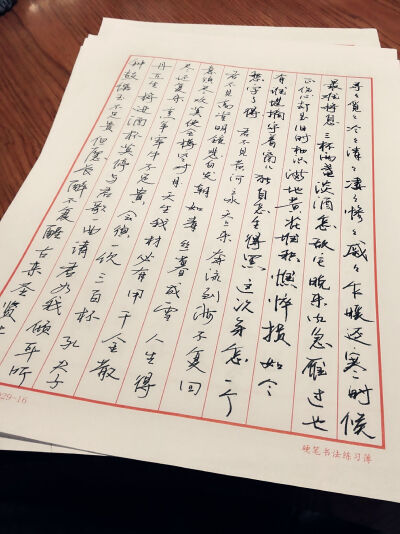 寻々觅々冷々清々凄々惨々戚々乍暖还寒时候
最难将息三杯两盏淡酒怎敌它晚来风急雁过也
正伤心却是旧时相识满地黄花堆积憔悴损如今
有谁堪摘守着窗儿独自怎生得黑这次第怎一个
愁字了得 君不见黄河之水天上来奔流到海不复回
君不见高堂明镜悲白发朝如青丝暮成雪人生得
意须尽欢莫使金樽空对月天生我材必有用千金散
尽还复来烹羊宰牛会须一饮三百杯夫子
丹丘生将进酒杯莫停与君歌一曲请君为我倾耳听
钟鼓馔玉不足贵但愿长醉不复醒古来圣贤
硬笔书法练习簿
29-16